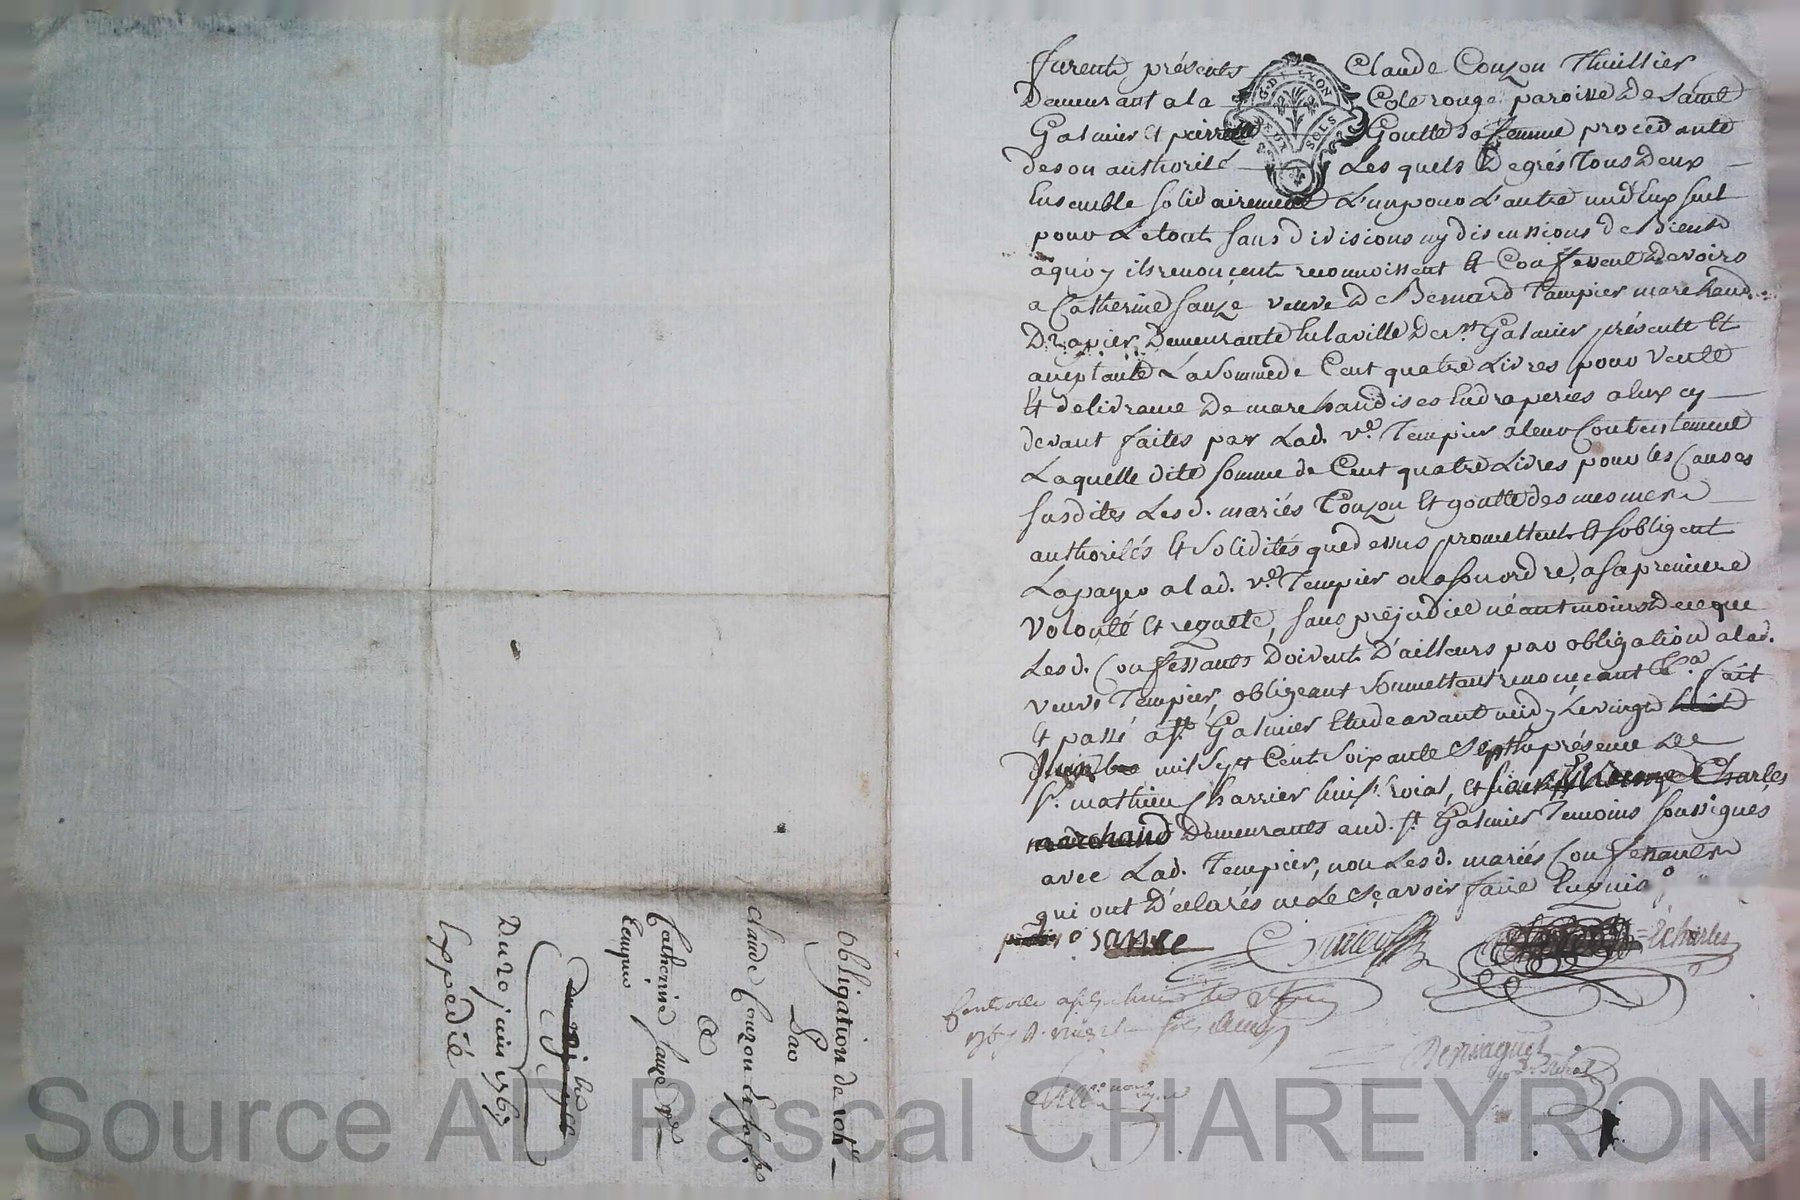 furent présents Claude Couzon Thuillier
Demeurant a la Cole rouge paroisse De saint
Galmier et pierrette Goutte sa femme procedante
de son authorité Les quels De grés Tous Deux
Ensemble solidairement L'un pour L'autre un d'Eux seul
pour Le tout sans divisions ny discussions de Biens
aquoy ils renoncent reconnoissent Et Confessent Devoirs
a Catherine Sauze veuve De Bernard Tampier marchand
Drapier Demeurante En la ville De st Galmier présente Et
aceptante La somme de Cent quatre Livres pour vente
Et delivrance De marchandises En draperies a Eux cy
devant faites par Lad. ve Tempier a leur Contentement
Laquelle dite somme de Cent quatre Livres pour les Causes
susdites Lesd. mariés Couzon Et goutte des mesmes
authorités Et solidités que dessus promettent Et s'obligent
La payer a lad. ve Tempier ou a son ordre, a sa premiere
volonté Et requette, sans préjudice néantmoins De ce que
Lesd. Confessants Doivent D'ailleurs par obligation a lad.
veuve Tempier, obligeant soumettant renonceant Ec.a fait
Et passé a st Galmier Etude avant midy Le vingt
mil sept Cent soixante sept En présence De
sr. mathieu Charrier huissr. roial, Et Charles
marchand Demeurants aud. st Galmier Temoins soussignés
avec Lad. Tempier, non Lesd. mariés Confessants
qui ont Déclarés ne Le sçavoir faire Enquis
Charles
obligation de 104#
Par
Claude Couzon Et sa fe
A
Catherine Sauze ve
Tempier
Du 20 juin 1767
Expédié
G. DE LYON
DEUX SOLS
Source AD Pascal CHAREYRON